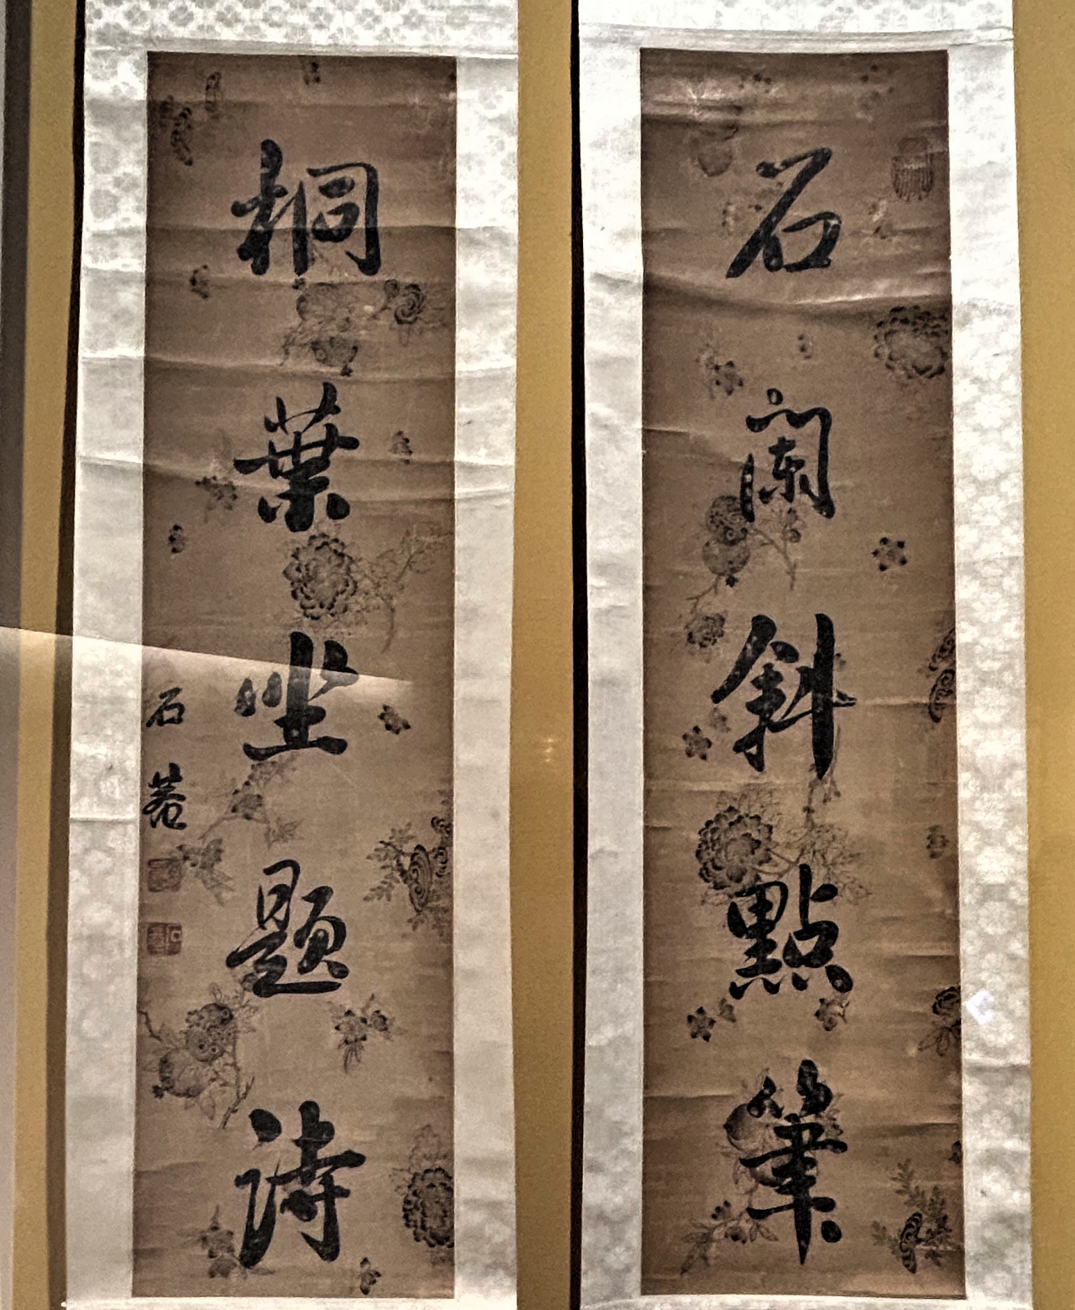 石闌斜點筆
桐葉坐題詩
石菴